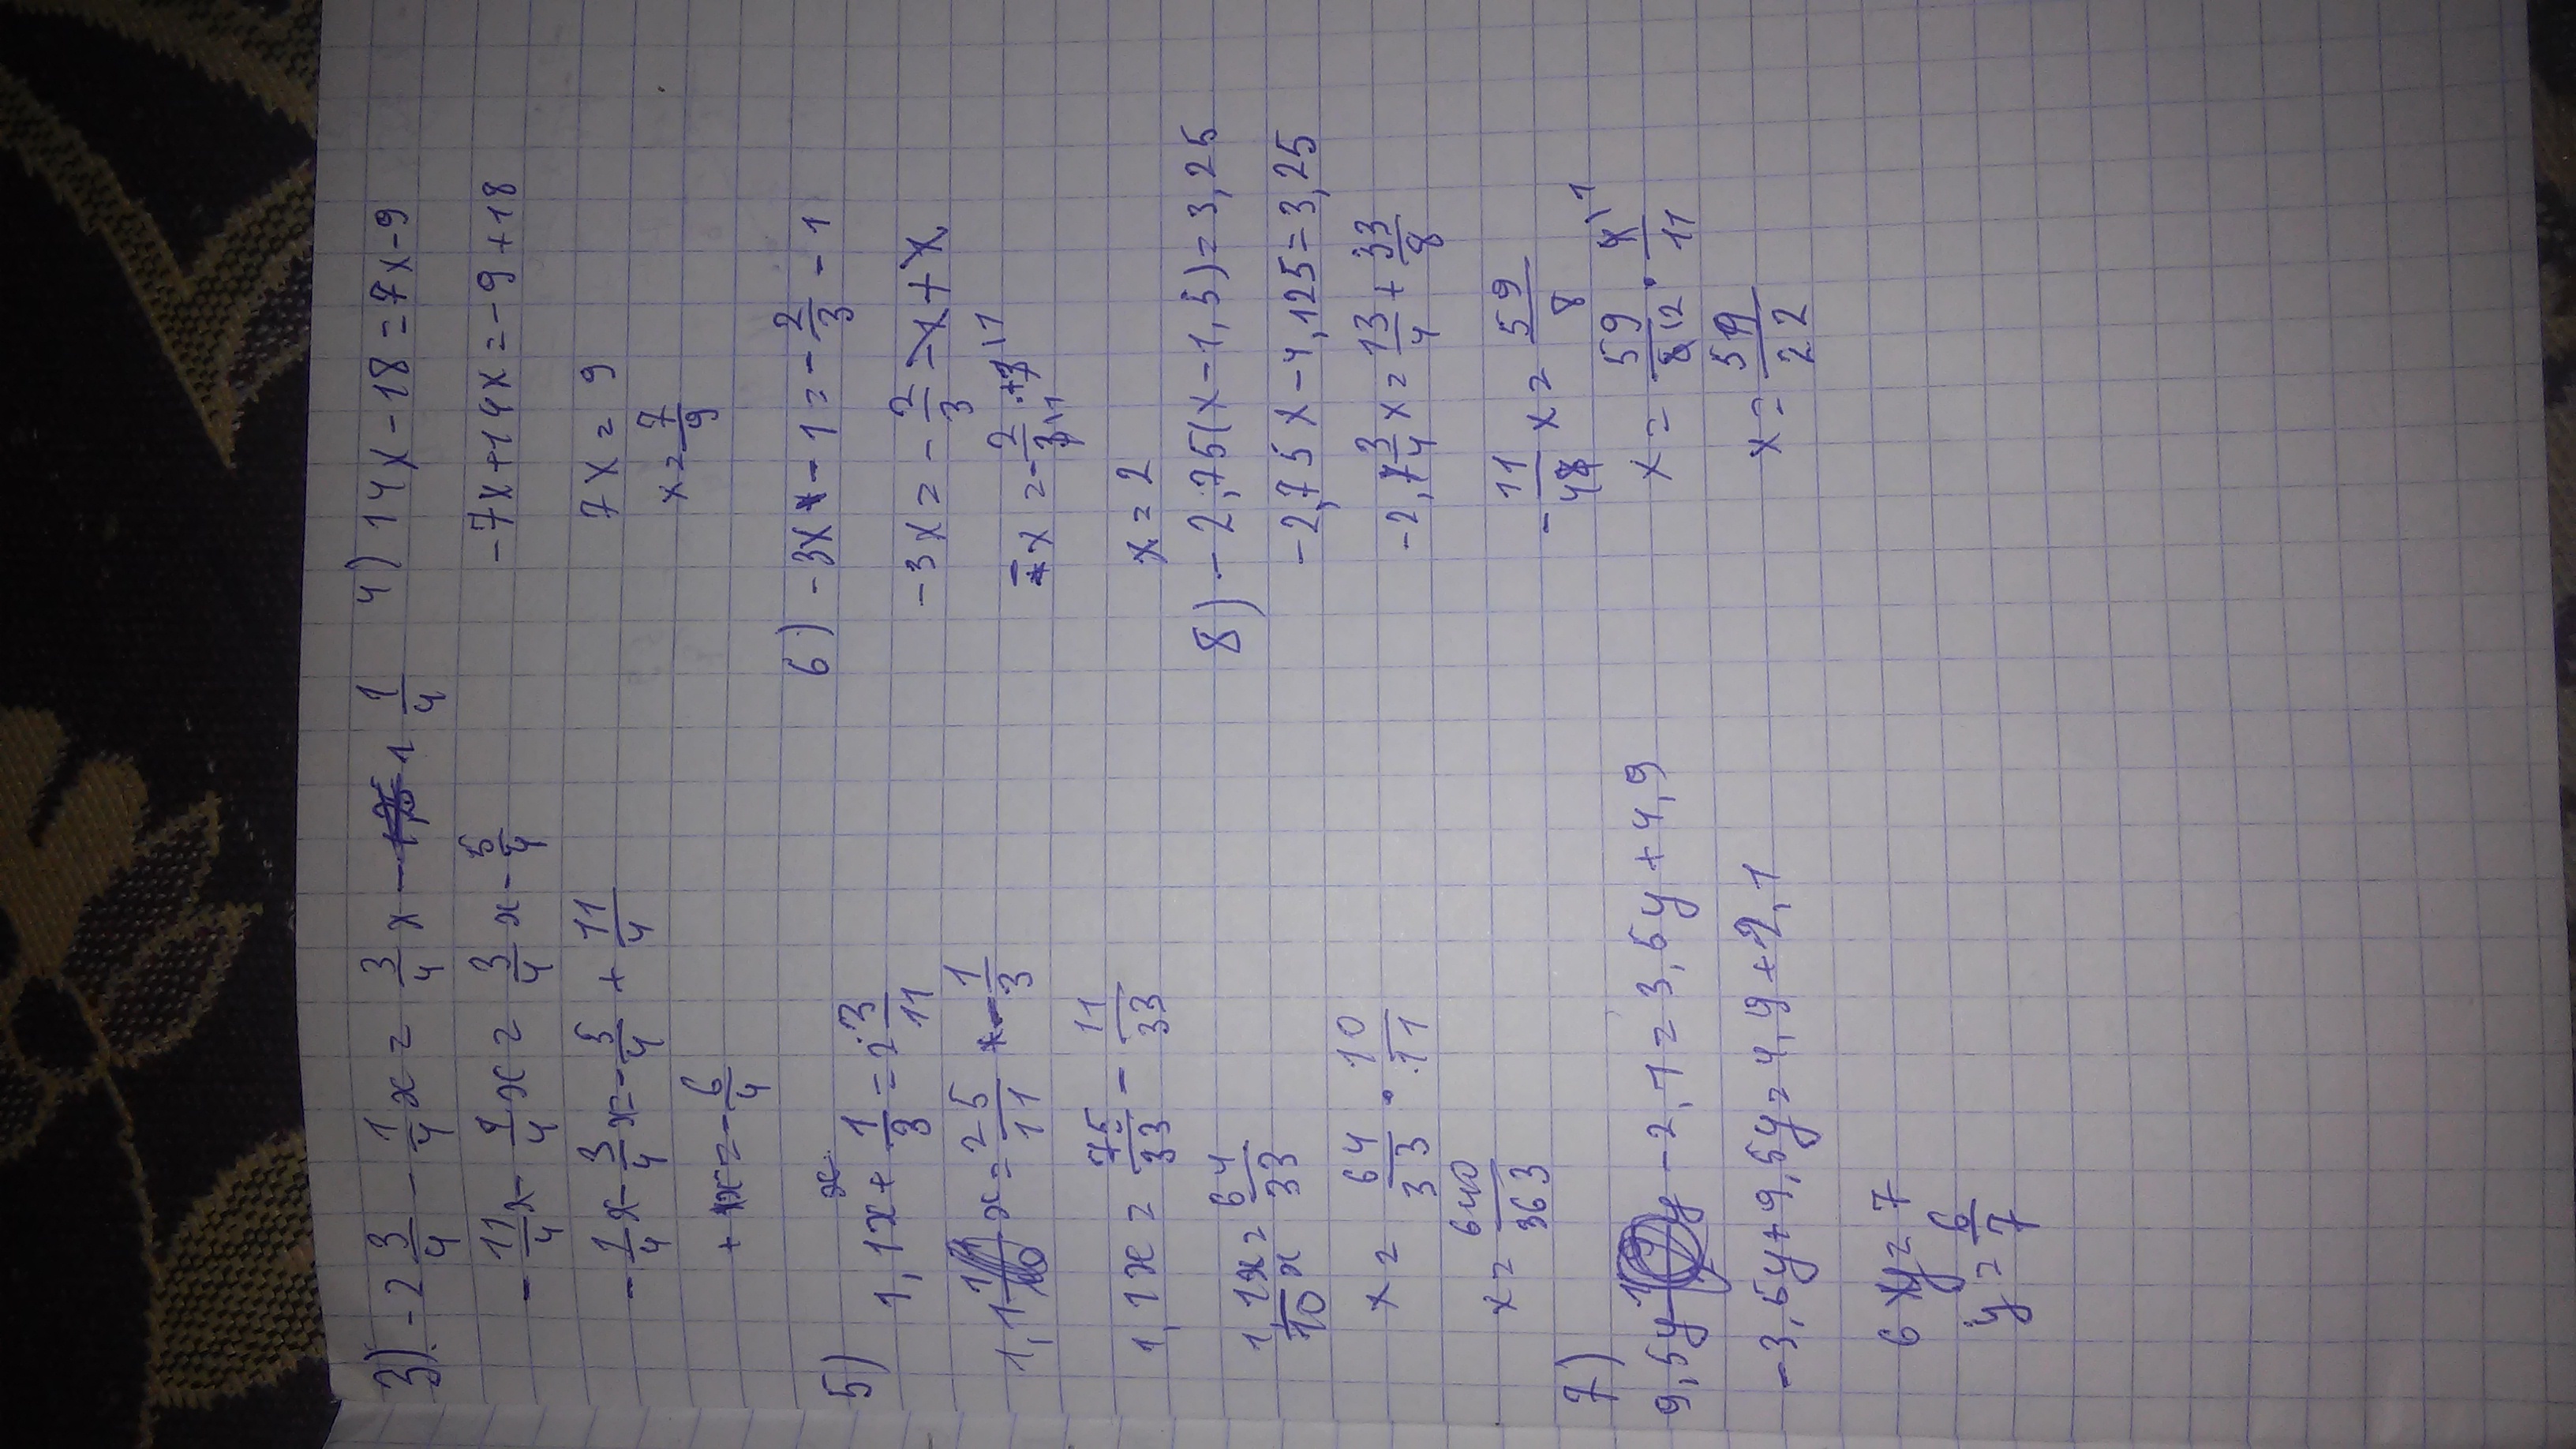 3) -2 3/4 - 1/4 x = 3/4 x - 1 1/4
- 11/4 x - 1/4 x = 3/4 x - 5/4
- 1/4 x - 3/4 x = - 5/4 + 11/4
+ x = - 6/4
4) 14x - 18 = 7x - 9
-7x + 14x = -9 + 18
7x = 9
x = 7/9
5)
1,1x + 1/3 = 2 3/11
1,1 x = 25/11 - 1/3
1,1x = 75/33 - 11/33
11/10 x = 64/33
x = 64/33 · 10/11
x = 640/363
6) -3x - 1 = - 2/3 - 1
-3x = - 2/3 - 1 + 1
- x = - 2/3
x = 2
7)
9,5y - 2,1 = 3,5y + 4,9
-3,5y + 9,5y = 4,9 + 2,1
6 y = 7
y = 6/7
8) -2,75(x - 1,5) = 3,25
-2,75x - 4,125 = 3,25
-2, 3/4 x = 13/4 + 33/8
- 11/4 x = 59/8
x = 59/8 2 · 4 1/11
x = 59/22